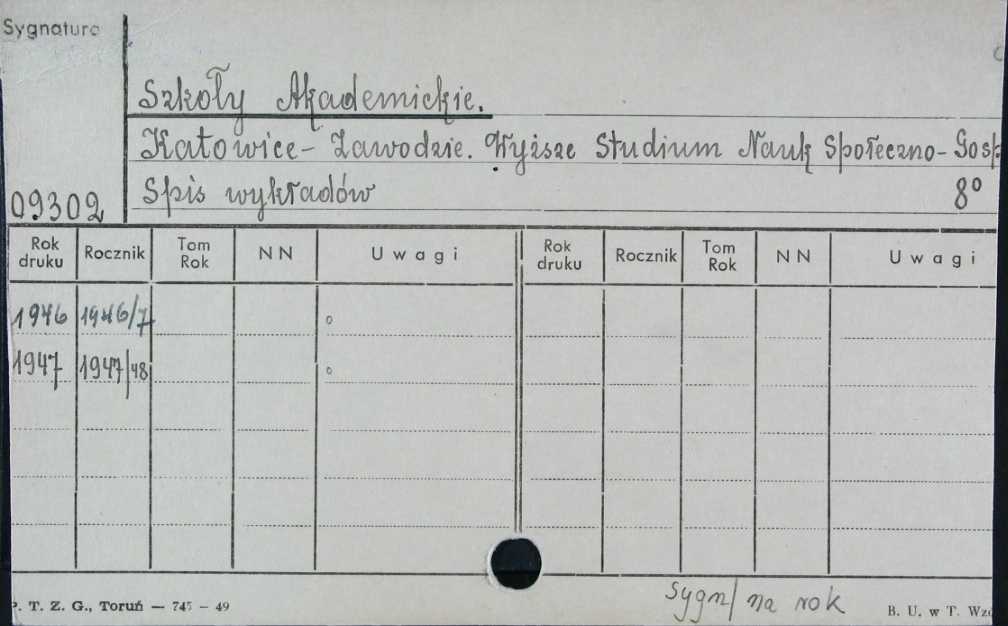 Sygnatura
Szkoły Akademickie.
Katowice - Zawodzie. Wyższe Studium Nauk Społeczno - Gosp
09302 Spis wykładów 8°
Rok druku Rocznik Tom Rok NN Uwagi Rok druku Rocznik Tom Rok NN Uwagi
1946 1946/7 o
1947 1947/48 o
sygn/ na rok
P. T. Z. G., Toruń — 745 — 49 B. U. w T. Wzó